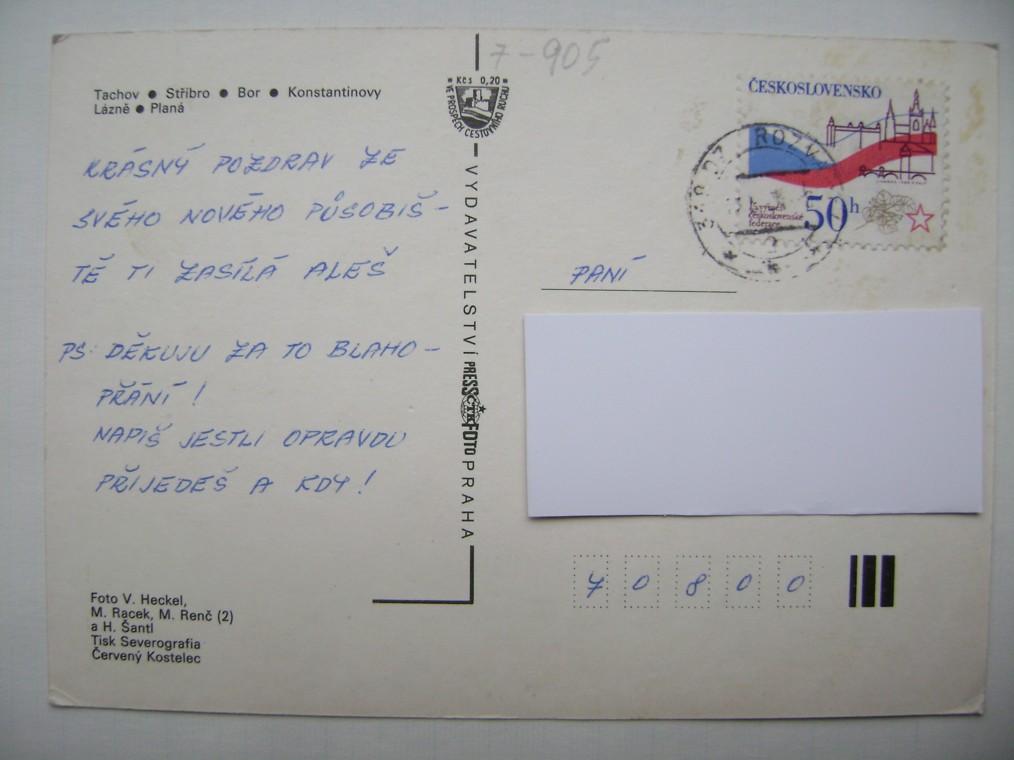 7-905
Tachov ● Stříbro ● Bor ● Konstantinovy
Lázně ● Planá
KRÁSNÝ POZDRAV ZE
SVÉHO NOVÉHO PŮSOBIŠ-
TĚ TI ZASÍLÁ ALEŠ
PS: DĚKUJU ZA TO BLAHO-
PŘÁNÍ!
NAPIŠ JESTLI OPRAVDU
PŘIJEDEŠ A KDY!
Foto V. Heckel,
M. Racek, M. Renč (2)
a H. Šantl
Tisk Severografia
Červený Kostelec
Kčs 0,20
VE PROSPĚCH CESTOVNÍHO RUCHU
VYDAVATELSTVÍ PRESSFOTO PRAHA
ČTK
ČESKOSLOVENSKO
československé
federace
50h
PANÍ
70800